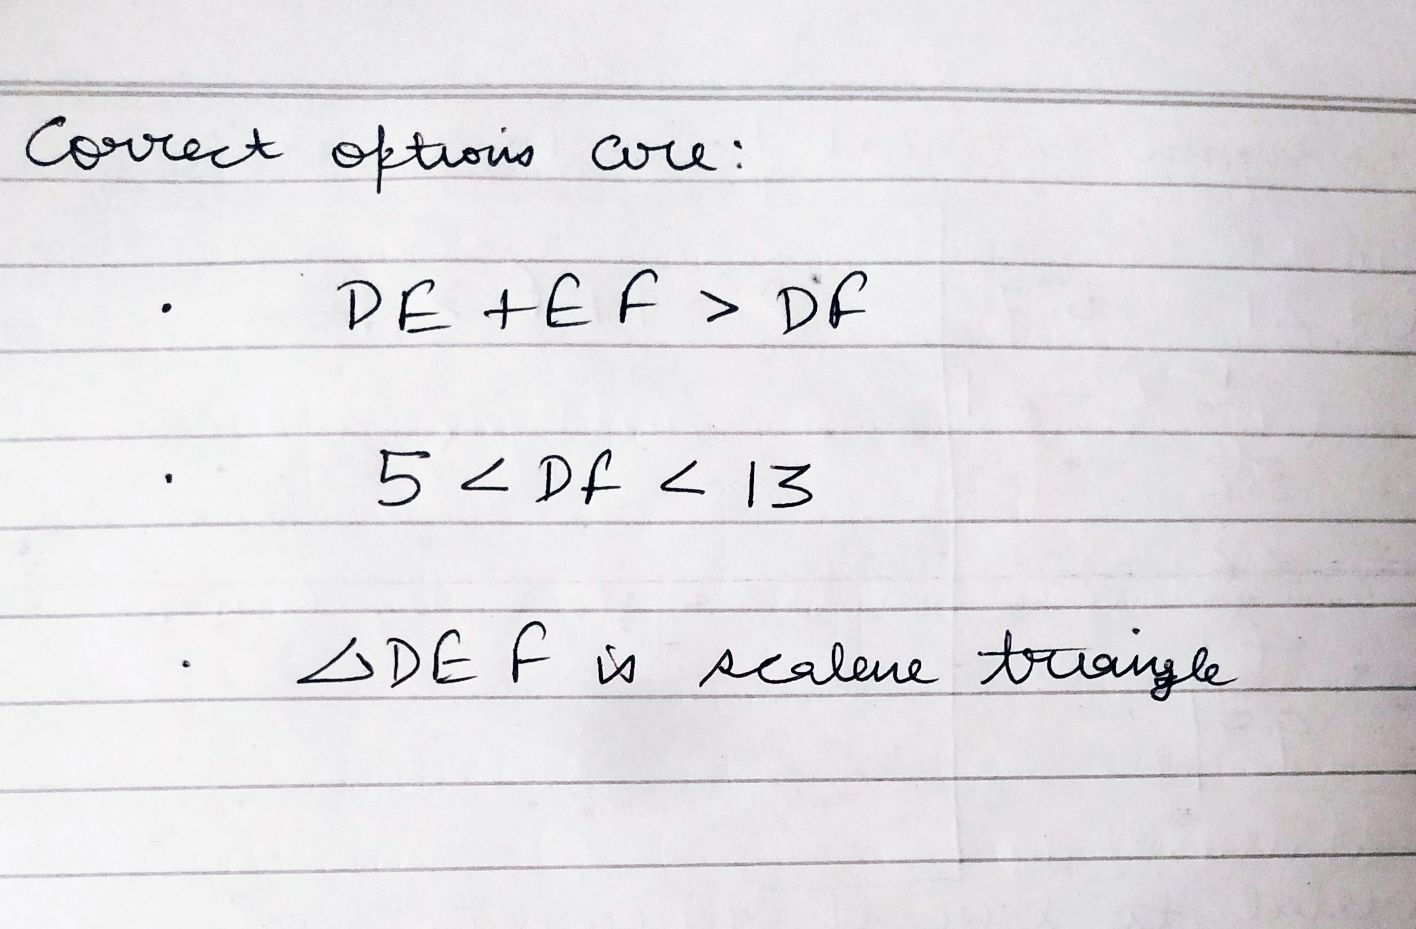 Correct options are:
· DE + EF > DF
· 5 < DF < 13
· △DEF is scalene triangle